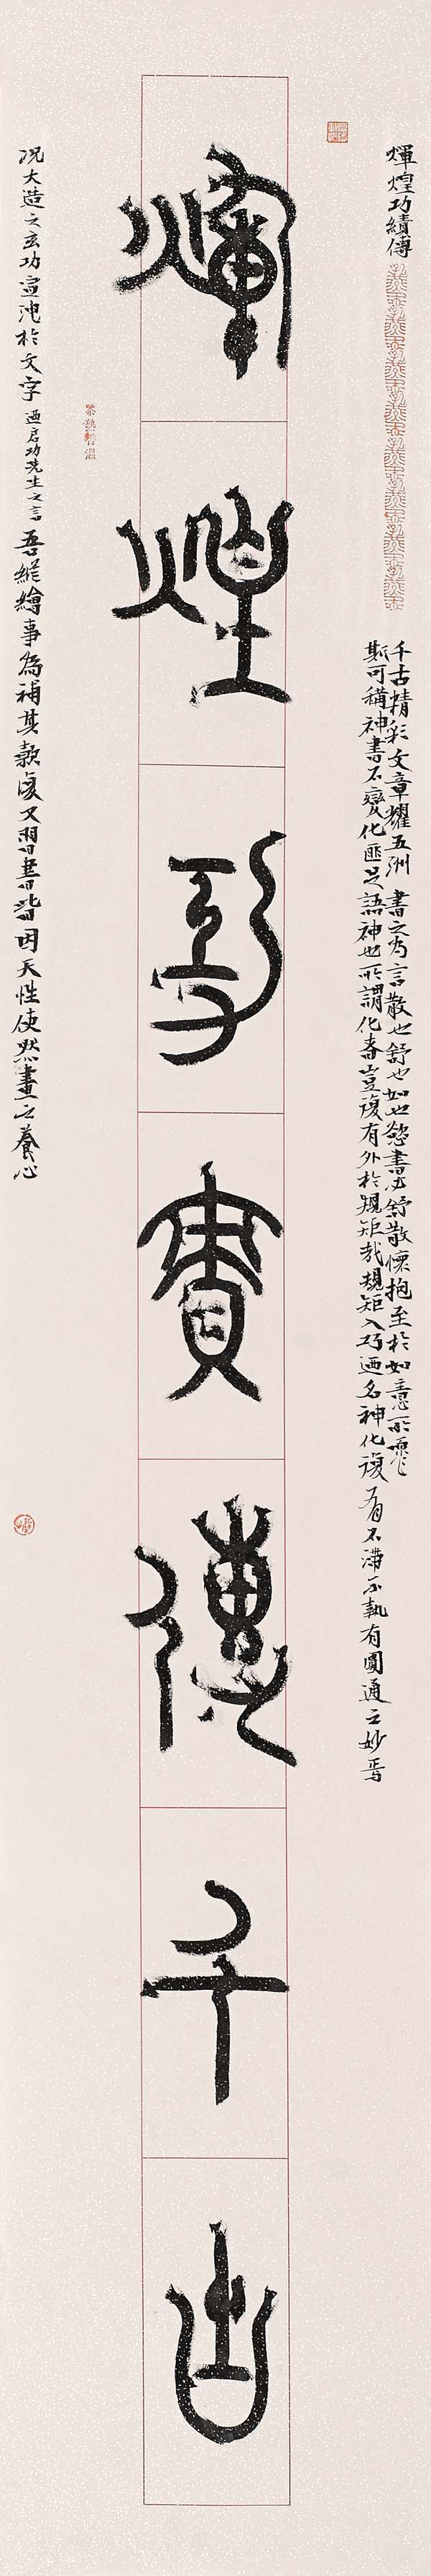 輝煌功績傳千古
輝煌功績傳
千古精彩文章耀五洲 書之為言散也舒也如也欲書必舒散懷抱至於如意所願
斯可稱神書不變化匪足語神也所謂化者豈復有外於規矩哉規矩入巧廼名神化複
有不滯不執有圓通之妙焉
況大造之玄功宣洩於文字 廼啟功先生之言 吾縱繪事為補其款復又習書皆因天性使然畫之養心